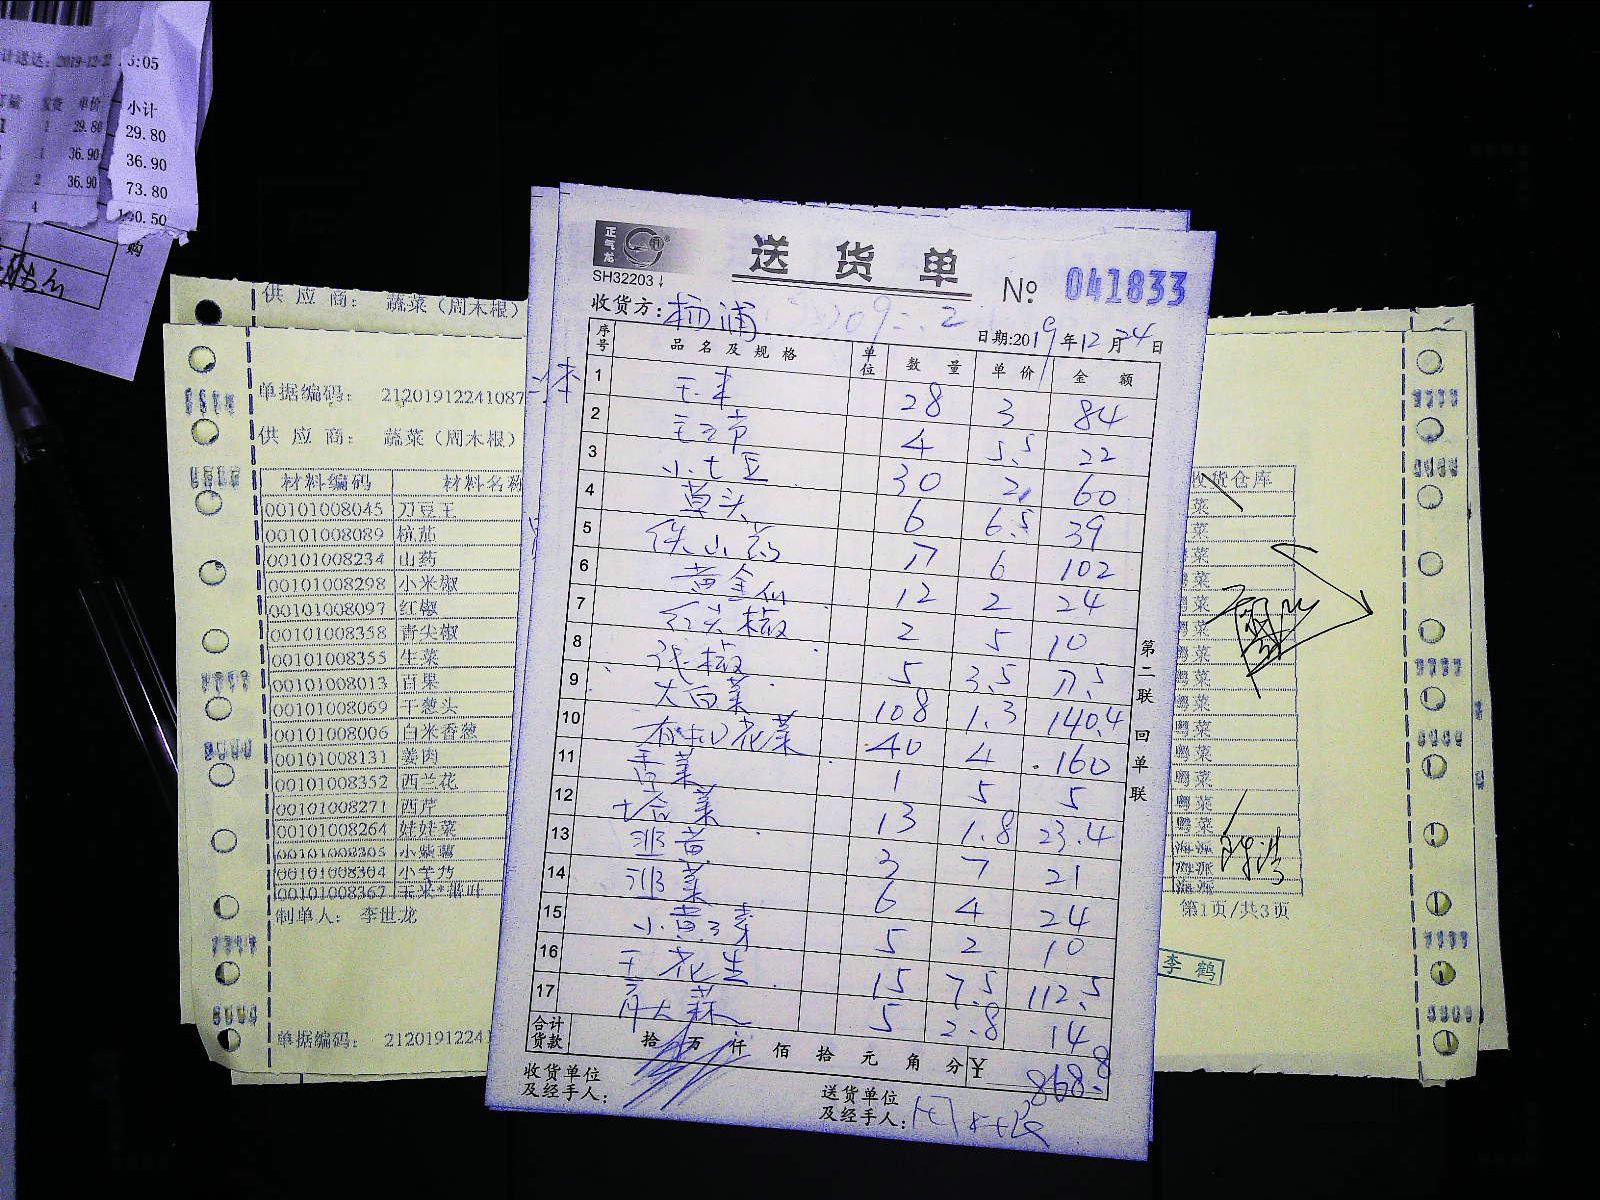 2019-12-22
小计
单价
1 29.80 29.80
1 36.90 36.90
2 36.90 73.80
4
购
供 应 商： 蔬菜（周木根）
单据编码： 21201912241087
供 应 商： 蔬菜（周木根）
材料编码 材料名称
00101008045 刀豆王
00101008089 杭茄
00101008234 山药
00101008298 小米椒
00101008097 红椒
00101008358 青尖椒
00101008355 生菜
00101008013 百果
00101008069 干葱头
00101008006 白米香葱
00101008131 姜肉
00101008352 西兰花
00101008271 西芹
00101008264 娃娃菜
00101008305 小紫薯
00101008304 小芋艿
00101008367 玉米*带叶
制单人： 李世龙
单据编码： 2120191224
正气龙
SH32203↓
送货单
№ 041833
收货方：杨浦
日期:2019年12月24日
序号 品名及规格 单位 数量 单价 金额
1 28 3 84
2 4 5.5 22
3 小土豆 30 2 60
4 草头 6 6.5 39
5 铁山药 17 6 102
6 黄金瓜 12 2 24
7 红尖椒 2 5 10
8 5 3.5 17.5
9 大白菜 108 1.3 140.4
10 有机花菜 40 4 160
11 香菜 1 5 5
12 塔菜 13 1.8 23.4
13 3 7 21
14 6 4 24
15 5 2 10
16 花生 15 7.5 112.5
17 5 2.8 14
合计货款 拾 万 仟 佰 拾 元 角 分 ¥ 868.8
收货单位及经手人：
送货单位及经手人：周木根
第二联 回单联
收货仓库
粤菜
第1页/共3页
李鹤